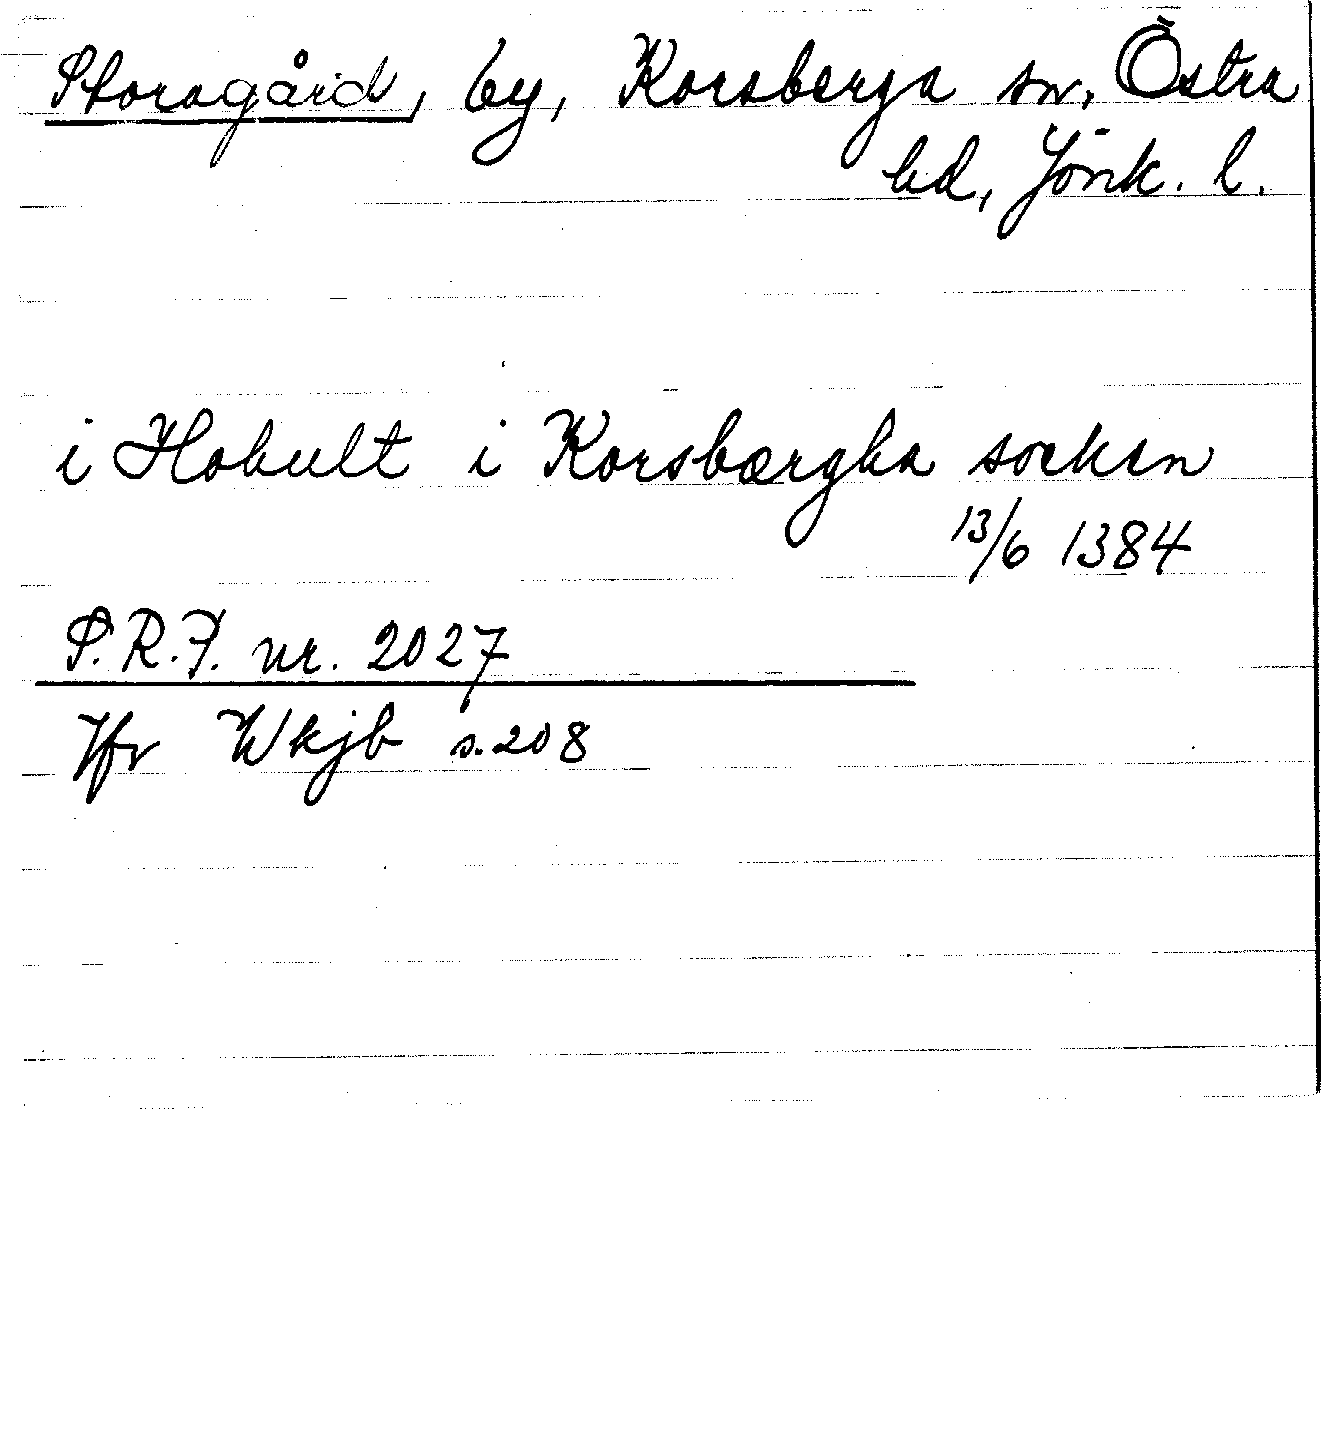 Storagård, by, Korsberga sn, Östra
hd, Jönk. l.
i Hobult i Korsbærgha soken
13/6 1384
S.R.P. nr. 2027
Jfr Wkjb s. 208